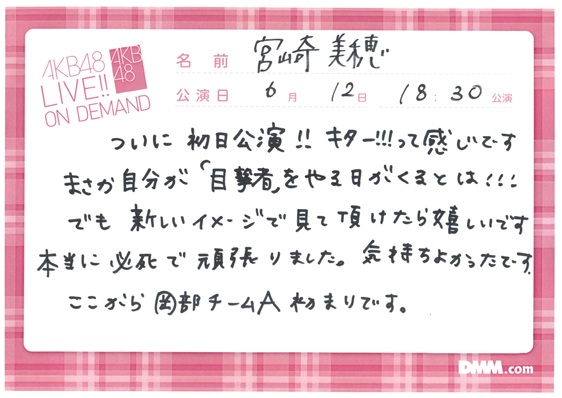 AKB48
LIVE!!
ON DEMAND
AKB
48
名前 宮崎美穂
公演日 6月 12日 18:30公演
ついに 初日公演!! キター!!!って感じです
まさか自分が「目撃者」をやる日がくるとは!!!
でも 新しいイメージで見て頂けたら嬉しいです
本当に必死で頑張りました。気持ちよかったです
ここから 岡部チームA 初まりです。
DMM.com